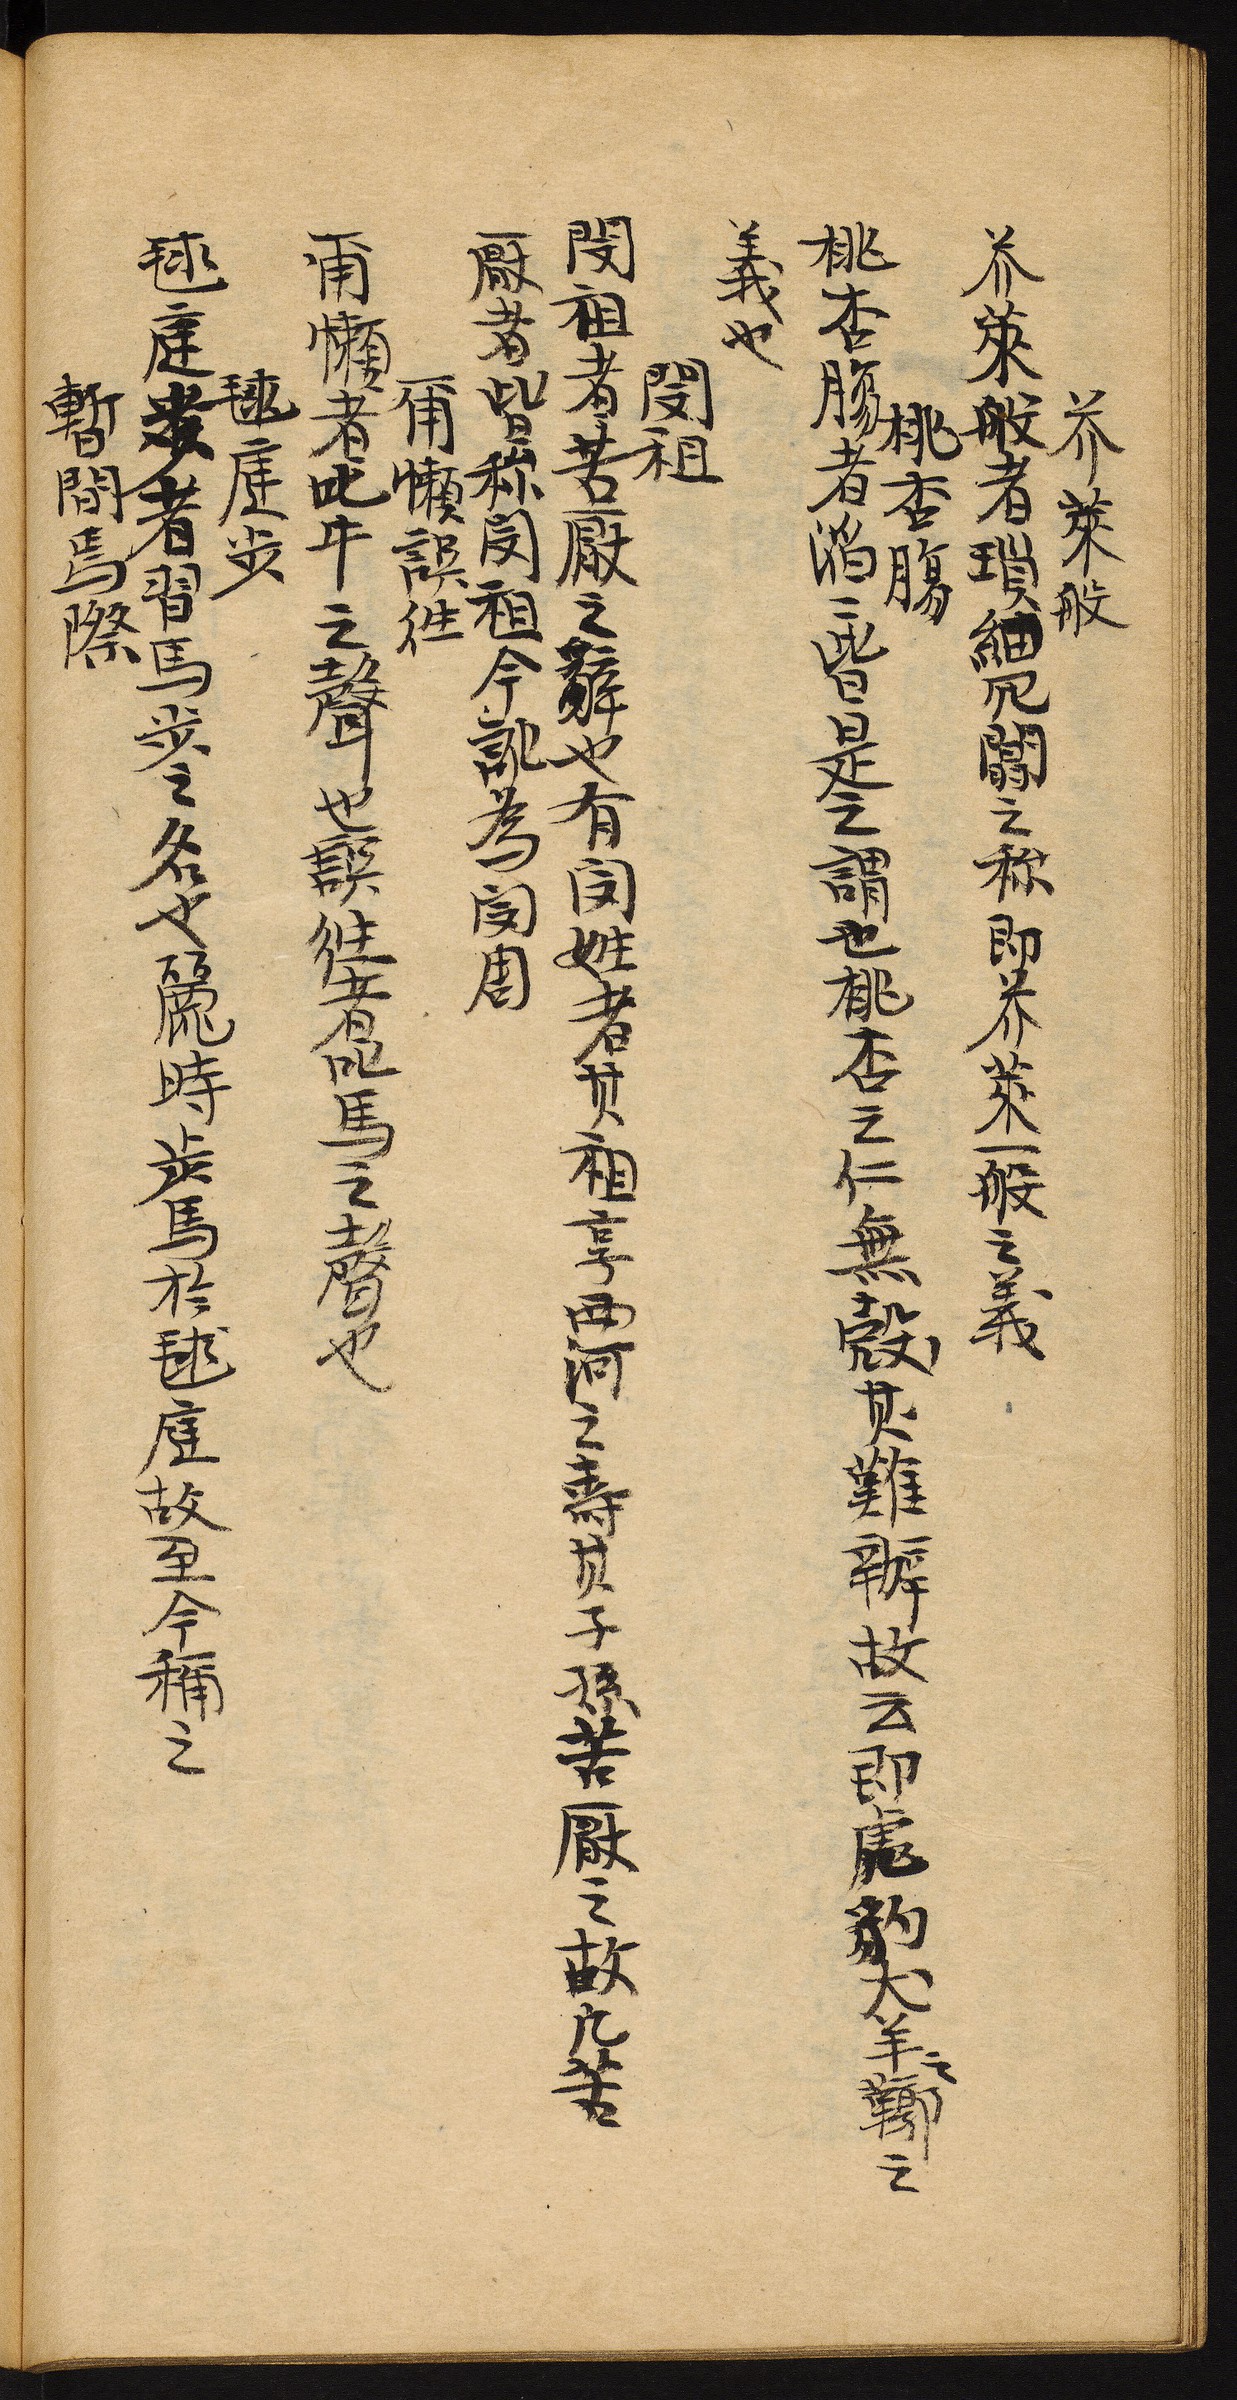 芥萊般
芥萊般者瑣細冗闒之称即芥萊一般之義
桃杏腸
桃杏腸者滔〻皆是之謂也桃杏之仁無殼其難辨故云即虎豹犬羊之鞹之
義也
閔祖
閔祖者苦厭之辭也有閔姓者其祖享西河之壽其子孫苦厭之故凡苦
厭者皆称閔祖今訛為閔周
甭懶誤往
甭懶者叱牛之聲也誤往者叱馬之聲也
毬庭步
毬庭步者習馬步之名也麗時步馬於毬庭故至今稱之
暫間焉際